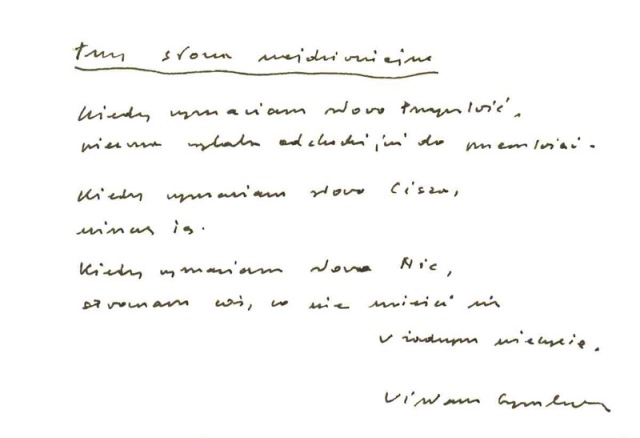 Trzy słowa najdziwniejsze
Kiedy wymawiam słowo Przyszłość,
pierwsza sylaba odchodzi już do przeszłości.
Kiedy wymawiam słowo Cisza,
niszczę ją.
Kiedy wymawiam słowo Nic,
stwarzam coś, co nie mieści się
w żadnym niebycie.
Wisława Szymborska